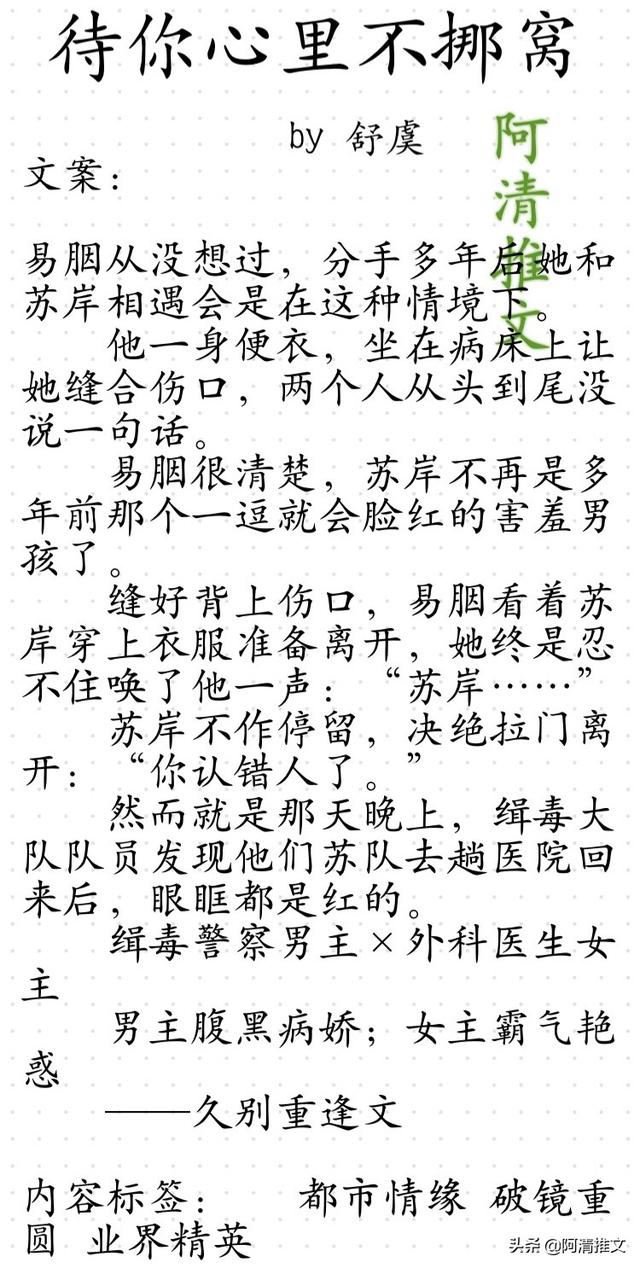 待你心里不挪窝
by 舒虞
阿清推文
文案：
易胭从没想过，分手多年后她和
苏岸相遇会是在这种情境下。
他一身便衣，坐在病床上让
她缝合伤口，两个人从头到尾没
说一句话。
易胭很清楚，苏岸不再是多
年前那个一逗就会脸红的害羞男
孩了。
缝好背上伤口，易胭看着苏
岸穿上衣服准备离开，她终是忍
不住唤了他一声：“苏岸……”
苏岸不作停留，决绝拉门离
开：“你认错人了。”
然而就是那天晚上，缉毒大
队队员发现他们苏队去趟医院回
来后，眼眶都是红的。
缉毒警察男主×外科医生女
主
男主腹黑病娇；女主霸气艳
惑
——久别重逢文
内容标签： 都市情缘 破镜重
圆 业界精英
头条 @阿清推文